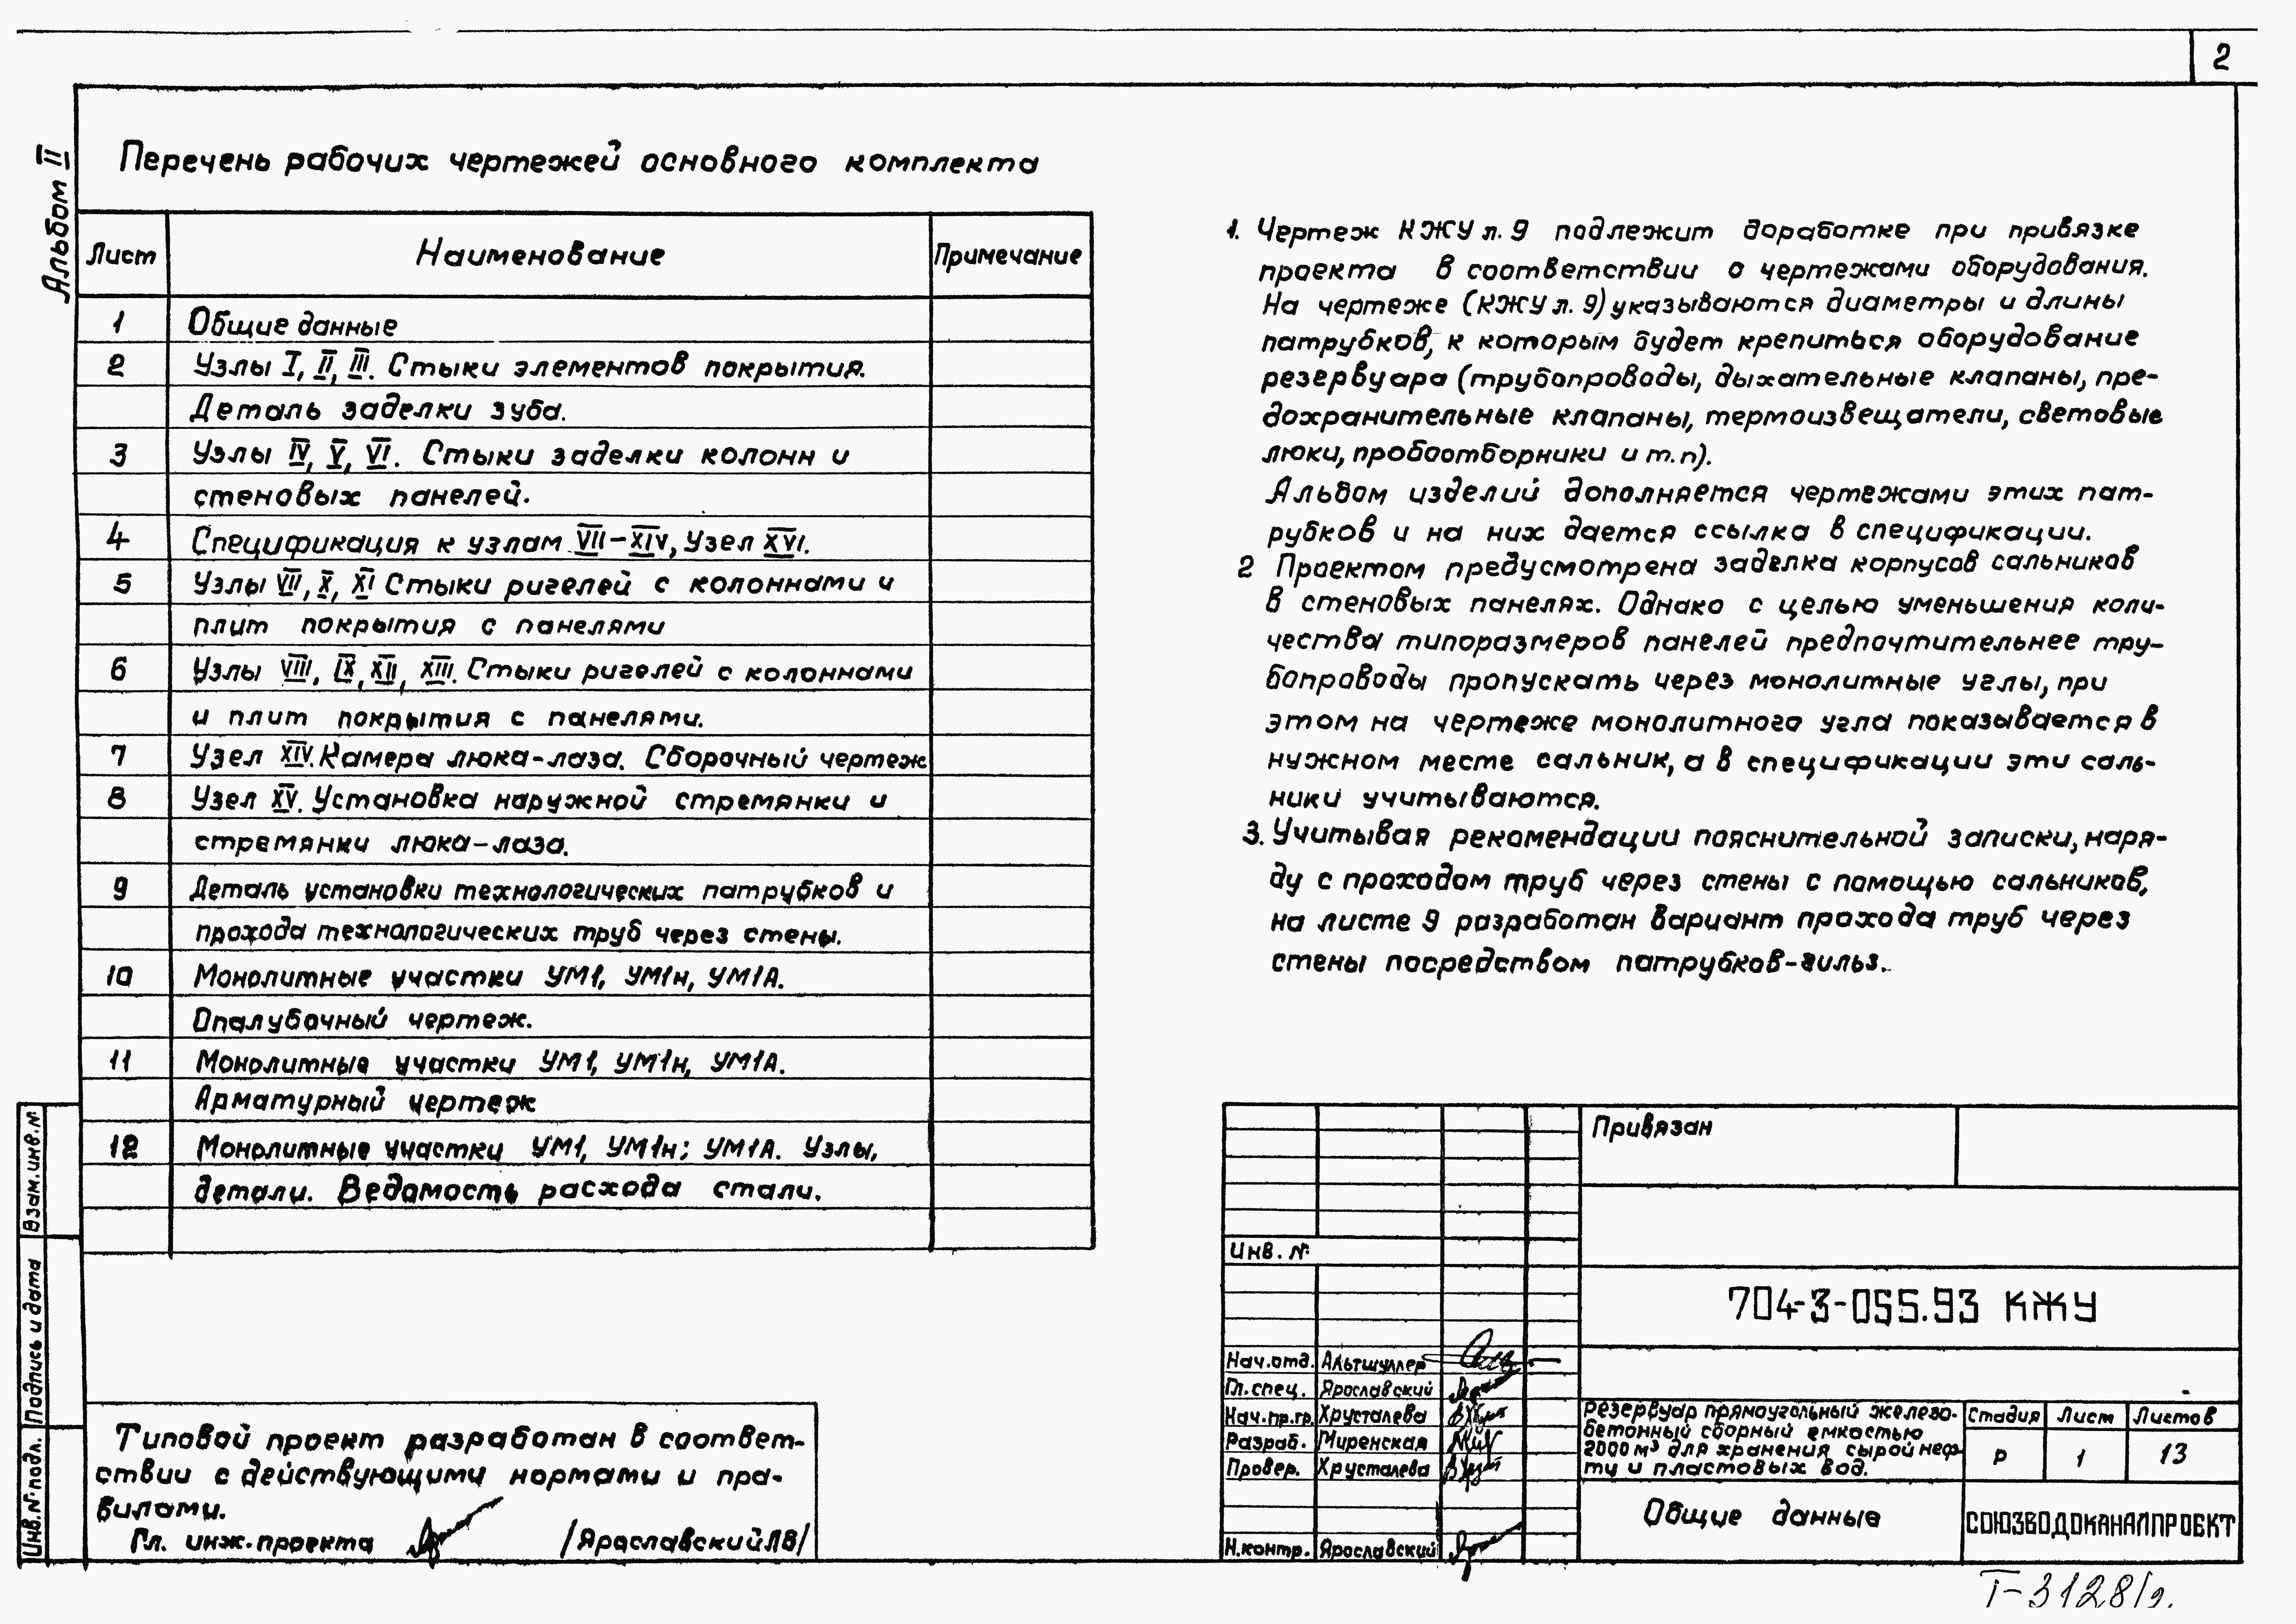 2
Альбом II
Перечень рабочих чертежей основного комплекта
Лист Наименование Примечание
1 Общие данные
2 Узлы I, II, III. Стыки элементов покрытия.
Деталь заделки зуба.
3 Узлы IV, V, VI. Стыки заделки колонн и
стеновых панелей.
4 Спецификация к узлам VII-XIV, Узел XVI.
5 Узлы VII, X, XI Стыки ригелей с колоннами и
плит покрытия с панелями
6 Узлы VIII, IX, XII, XIII. Стыки ригелей с колоннами
и плит покрытия с панелями.
7 Узел XIV. Камера люка-лаза. Сборочный чертеж
8 Узел XV. Установка наружной стремянки и
стремянки люка-лаза.
9 Деталь установки технологических патрубков и
прохода технологических труб через стены.
10 Монолитные участки УМ1, УМ1н, УМ1А.
Опалубочный чертеж.
11 Монолитные участки УМ1, УМ1н, УМ1А.
Арматурный чертеж
12 Монолитные участки УМ1, УМ1н; УМ1А. Узлы,
детали. Ведомость расхода стали.
1. Чертеж КЖУ л. 9 подлежит доработке при привязке
проекта в соответствии с чертежами оборудования.
На чертеже (КЖУ л. 9) указываются диаметры и длины
патрубков, к которым будет крепиться оборудование
резервуара (трубопроводы, дыхательные клапаны, пре-
дохранительные клапаны, термоизвещатели, световые
люки, пробоотборники и т.п).
Альбом изделий дополняется чертежами этих пат-
рубков и на них дается ссылка в спецификации.
2 Проектом предусмотрена заделка корпусов сальников
в стеновых панелях. Однако с целью уменьшения коли-
чества типоразмеров панелей предпочтительнее тру-
бопроводы пропускать через монолитные углы, при
этом на чертеже монолитного угла показывается в
нужном месте сальник, а в спецификации эти саль-
ники учитываются.
3. Учитывая рекомендации пояснительной записки, наря-
ду с проходом труб через стены с помощью сальников,
на листе 9 разработан вариант прохода труб через
стены посредством патрубков-гильз.
Взам. инв. №
Подпись и дата
Инв. № подл.
Типовой проект разработан в соответ-
ствии с действующими нормами и пра-
вилами.
Гл. инж. проекта /Ярославский ЛВ/
Привязан
Инв. №
704-3-055.93 КЖУ
Нач. отд. Альтшуллер
Гл. спец. Ярославский
Нач. пр. гр. Хрусталева
Разраб. Миренская
Провер. Хрусталева
Н. контр. Ярославский
Резервуар прямоугольный железо-
бетонный сборный емкостью
2000 м³ для хранения сырой неф-
ти и пластовых вод.
Стадия Лист Листов
Р 1 13
Общие данные
СОЮЗВОДОКАНАЛПРОЕКТ